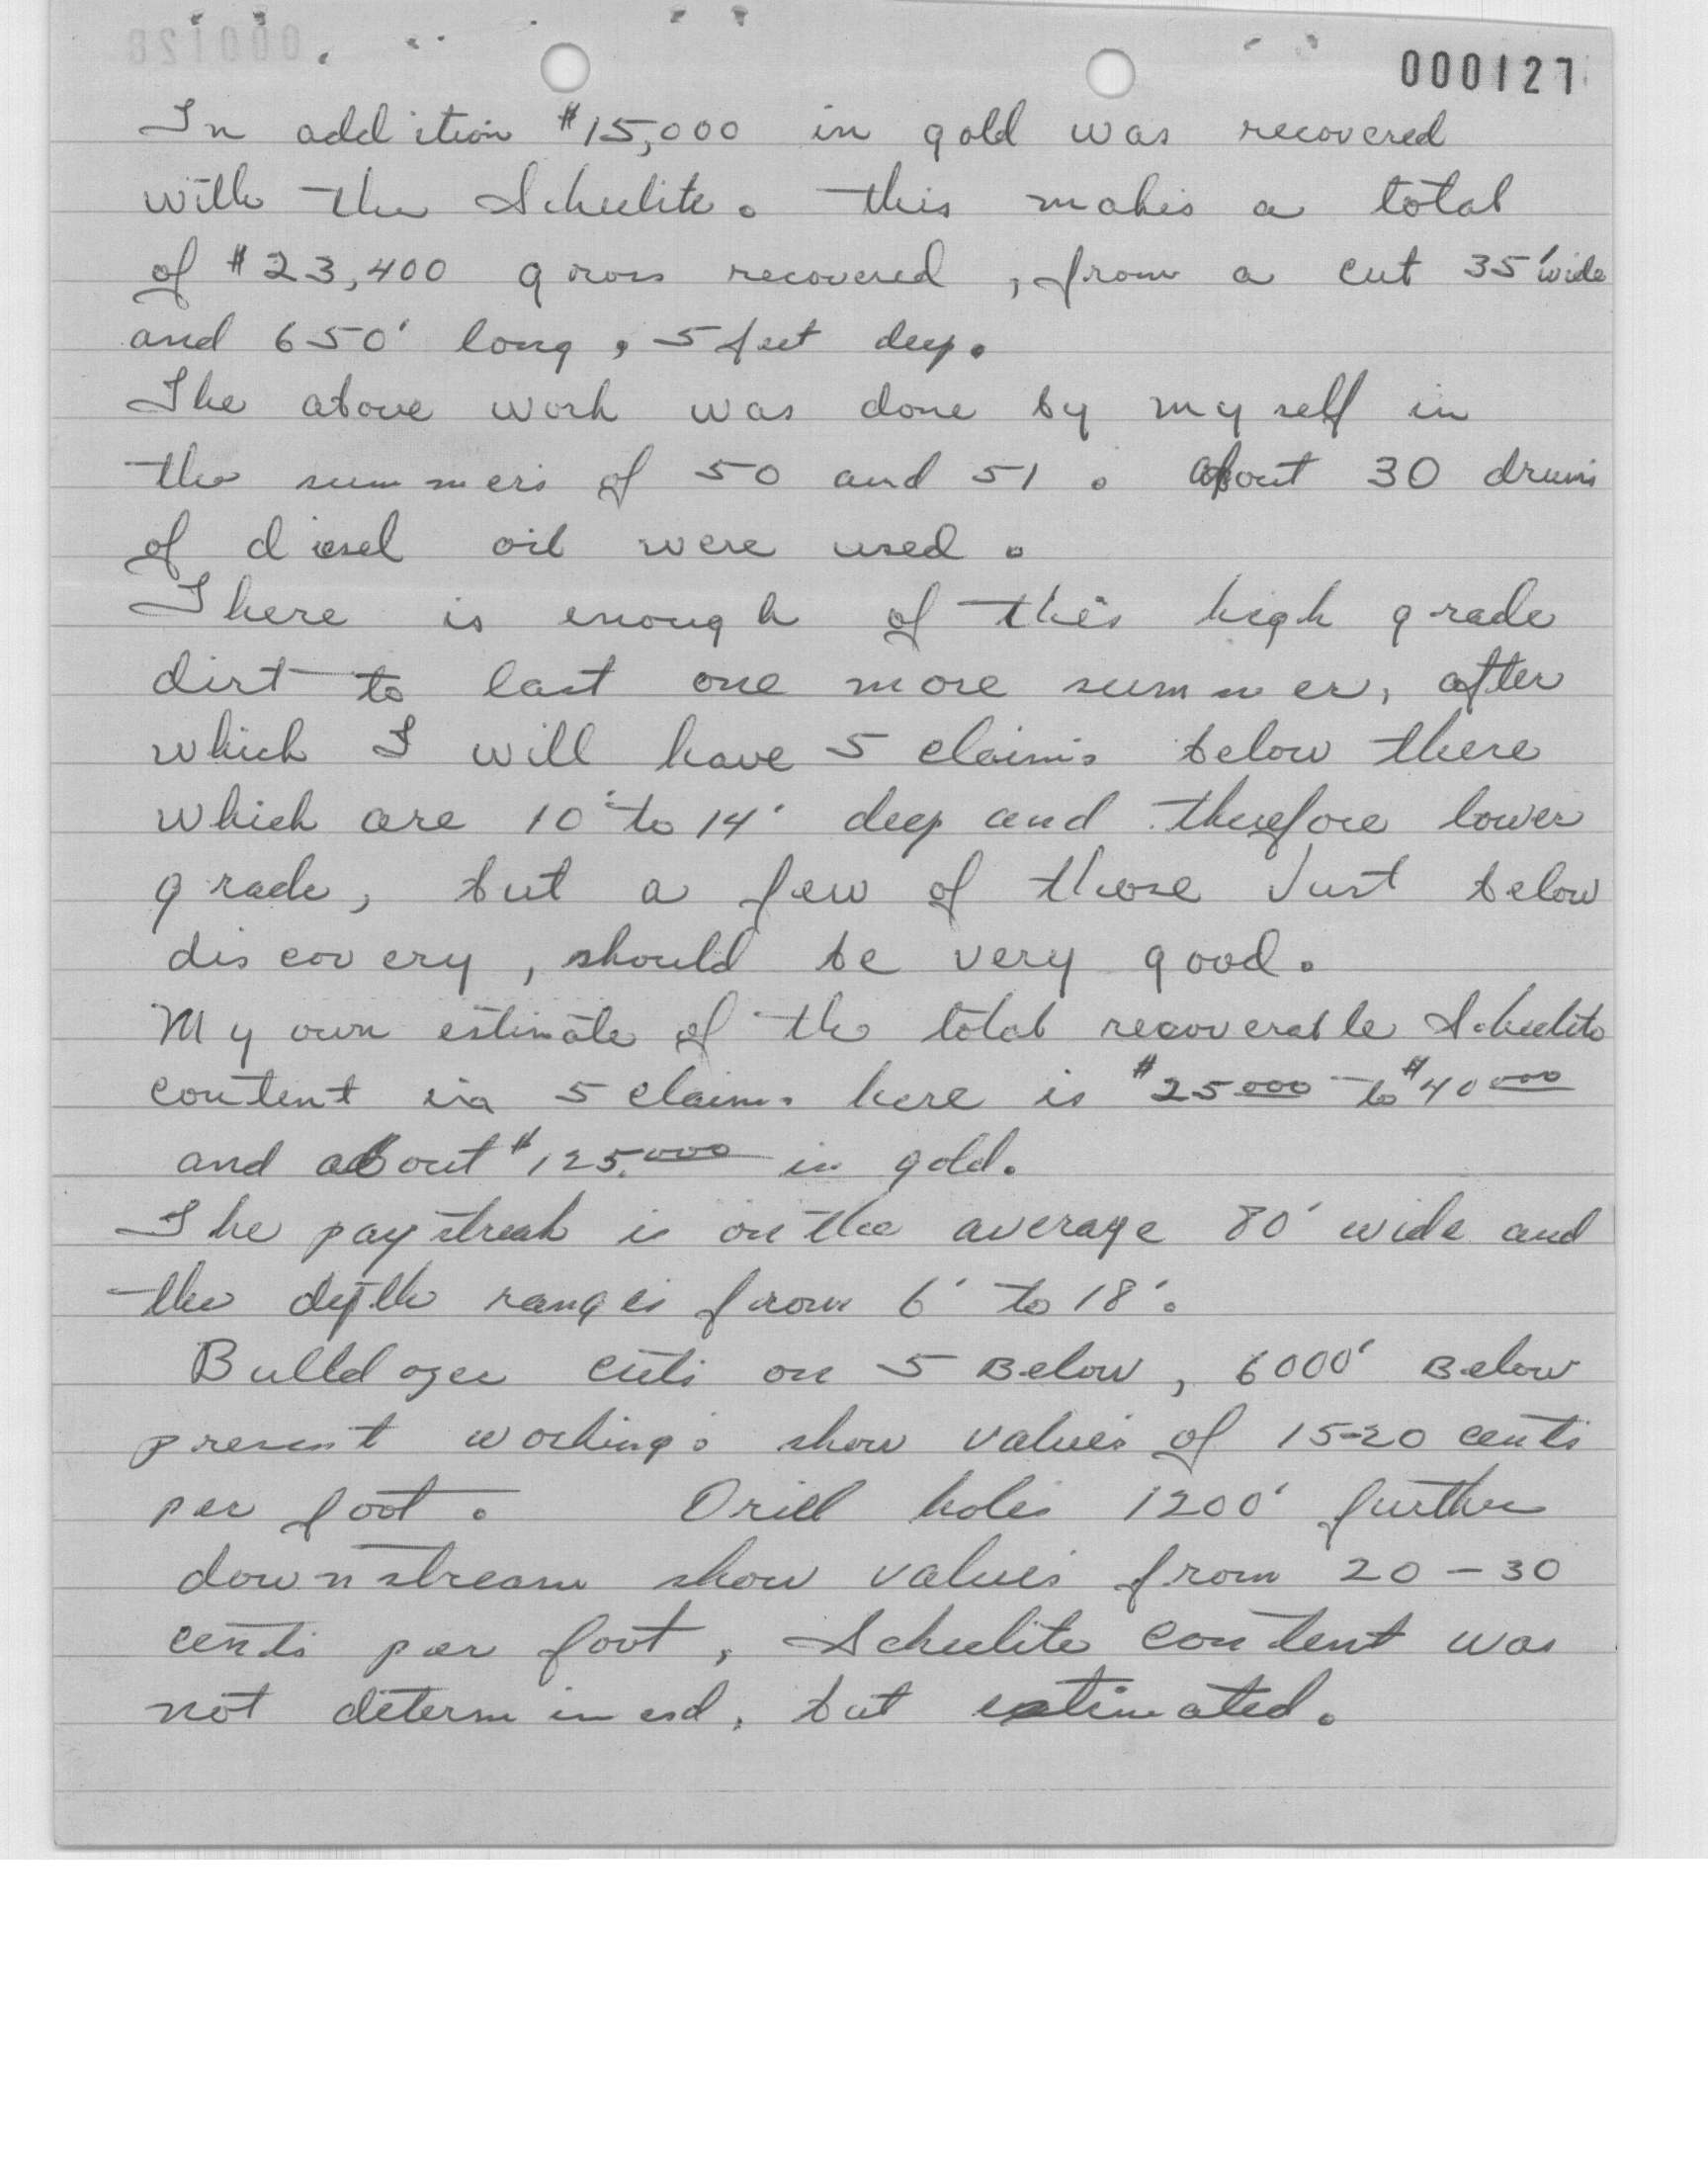 000127
In addition $15,000 in gold was recovered
with the Scheelite. this makes a total
of $23,400 gross recovered, from a cut 35' wide
and 650' long, 5 feet deep.
The above work was done by myself in
the summers of 50 and 51. about 30 drums
of diesel oil were used.
There is enough of this high grade
dirt to last one more summer, after
which I will have 5 claims below there
which are 10' to 14' deep and therefore lower
grade, but a few of those Just below
discovery, should be very good.
My own estimate of the total recoverable Scheelite
content in 5 claims here is $25000 to $40000
and about $125,000 in gold.
The paystreak is on the average 80' wide and
the depth ranges from 6' to 18'.
Bulldozer cuts on 5 Below, 6000' Below
present workings show values of 15-20 cents
per foot. Drill holes 1200' further
downstream show values from 20-30
cents per foot, Scheelite content was
not determined, but estimated.